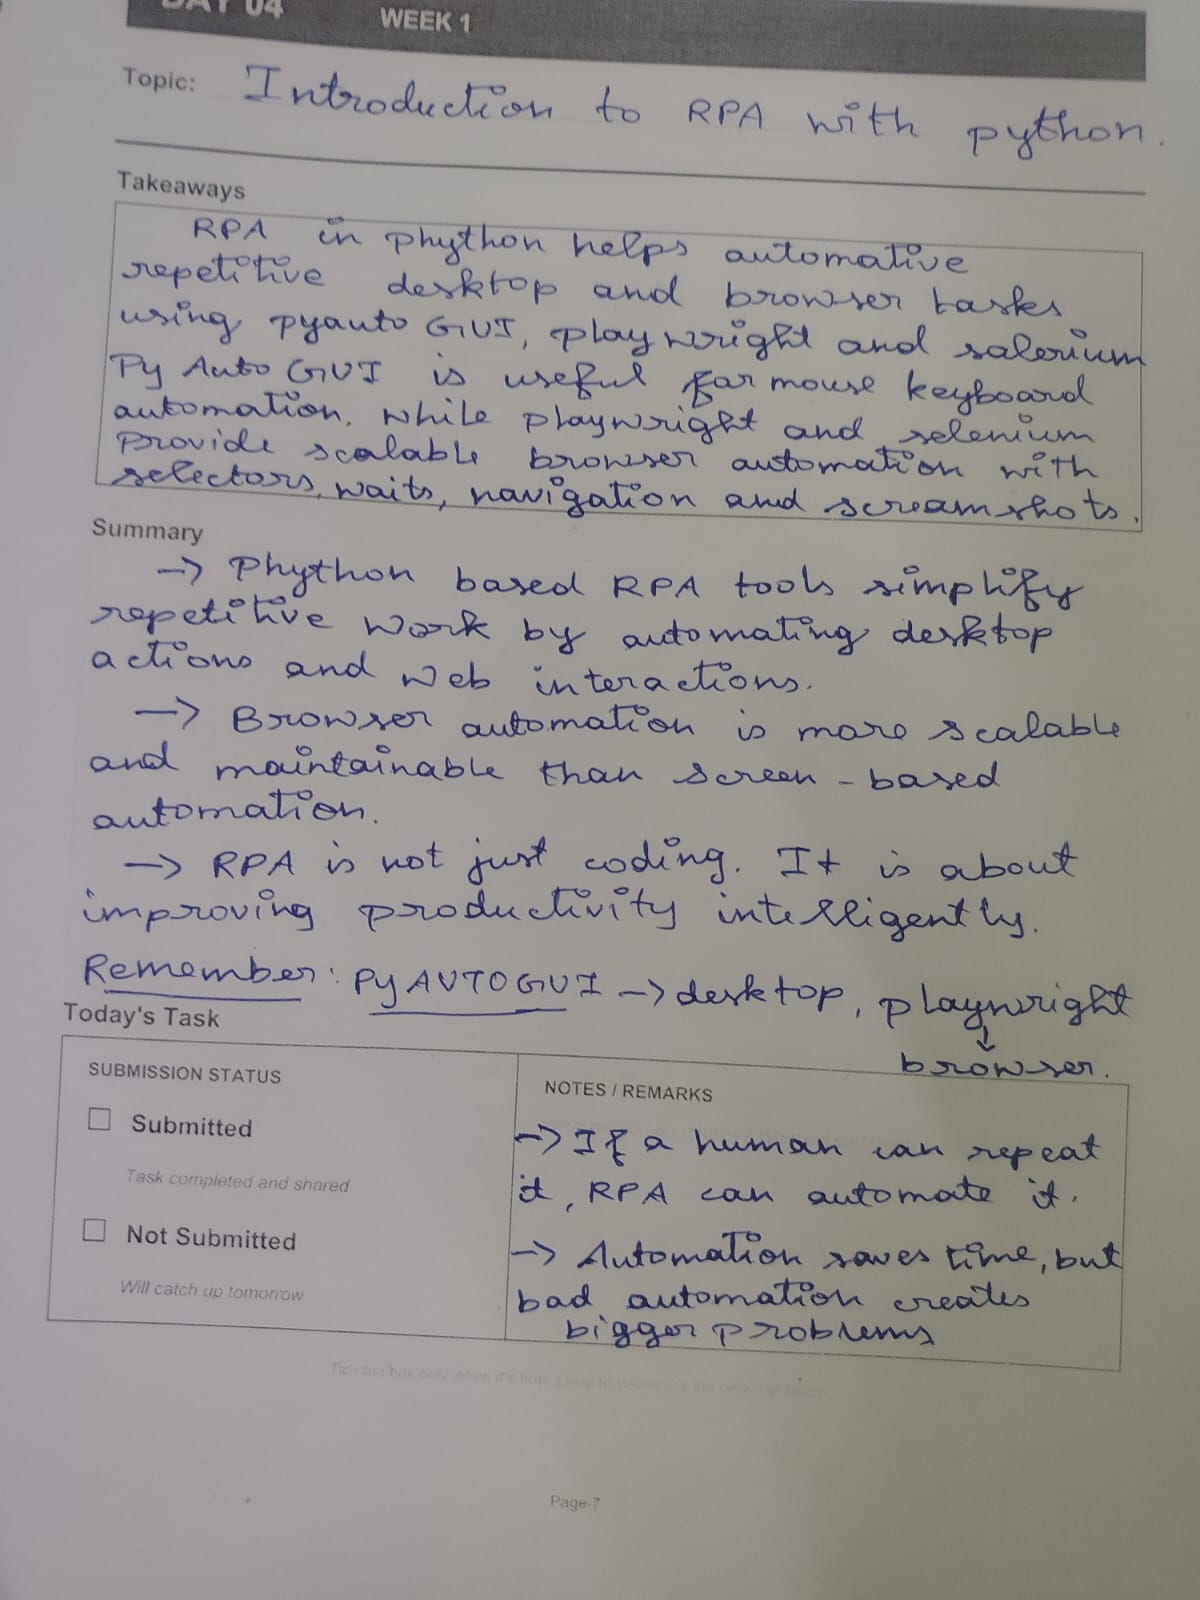 DAY 04
WEEK 1
Topic: Introduction to RPA with python.
Takeaways
RPA in phython helps automative
repetitive desktop and browser tasks
using pyauto GUI, playwright and salerium
Py Auto GUI is useful for mouse keyboard
automation. while playwright and selenium
provide scalable browser automation with
selectors, waits, navigation and screamshots.
Summary
-> Phython based RPA tools simplify
repetitive work by automating desktop
actions and web interactions.
-> Browser automation is more scalable
and maintainable than screen-based
automation.
-> RPA is not just coding. It is about
improving productivity intelligently.
Remember: PyAUTOGUI -> desktop, playwright
↓
browser.
Today's Task
SUBMISSION STATUS
☐ Submitted
Task completed and shared
☐ Not Submitted
Will catch up tomorrow
NOTES / REMARKS
-> If a human can repeat
it, RPA can automate it.
-> Automation saves time, but
bad automation creates
bigger problems
Tick the box only when it's true. Lying to yourself is the only real failure.
Page-7